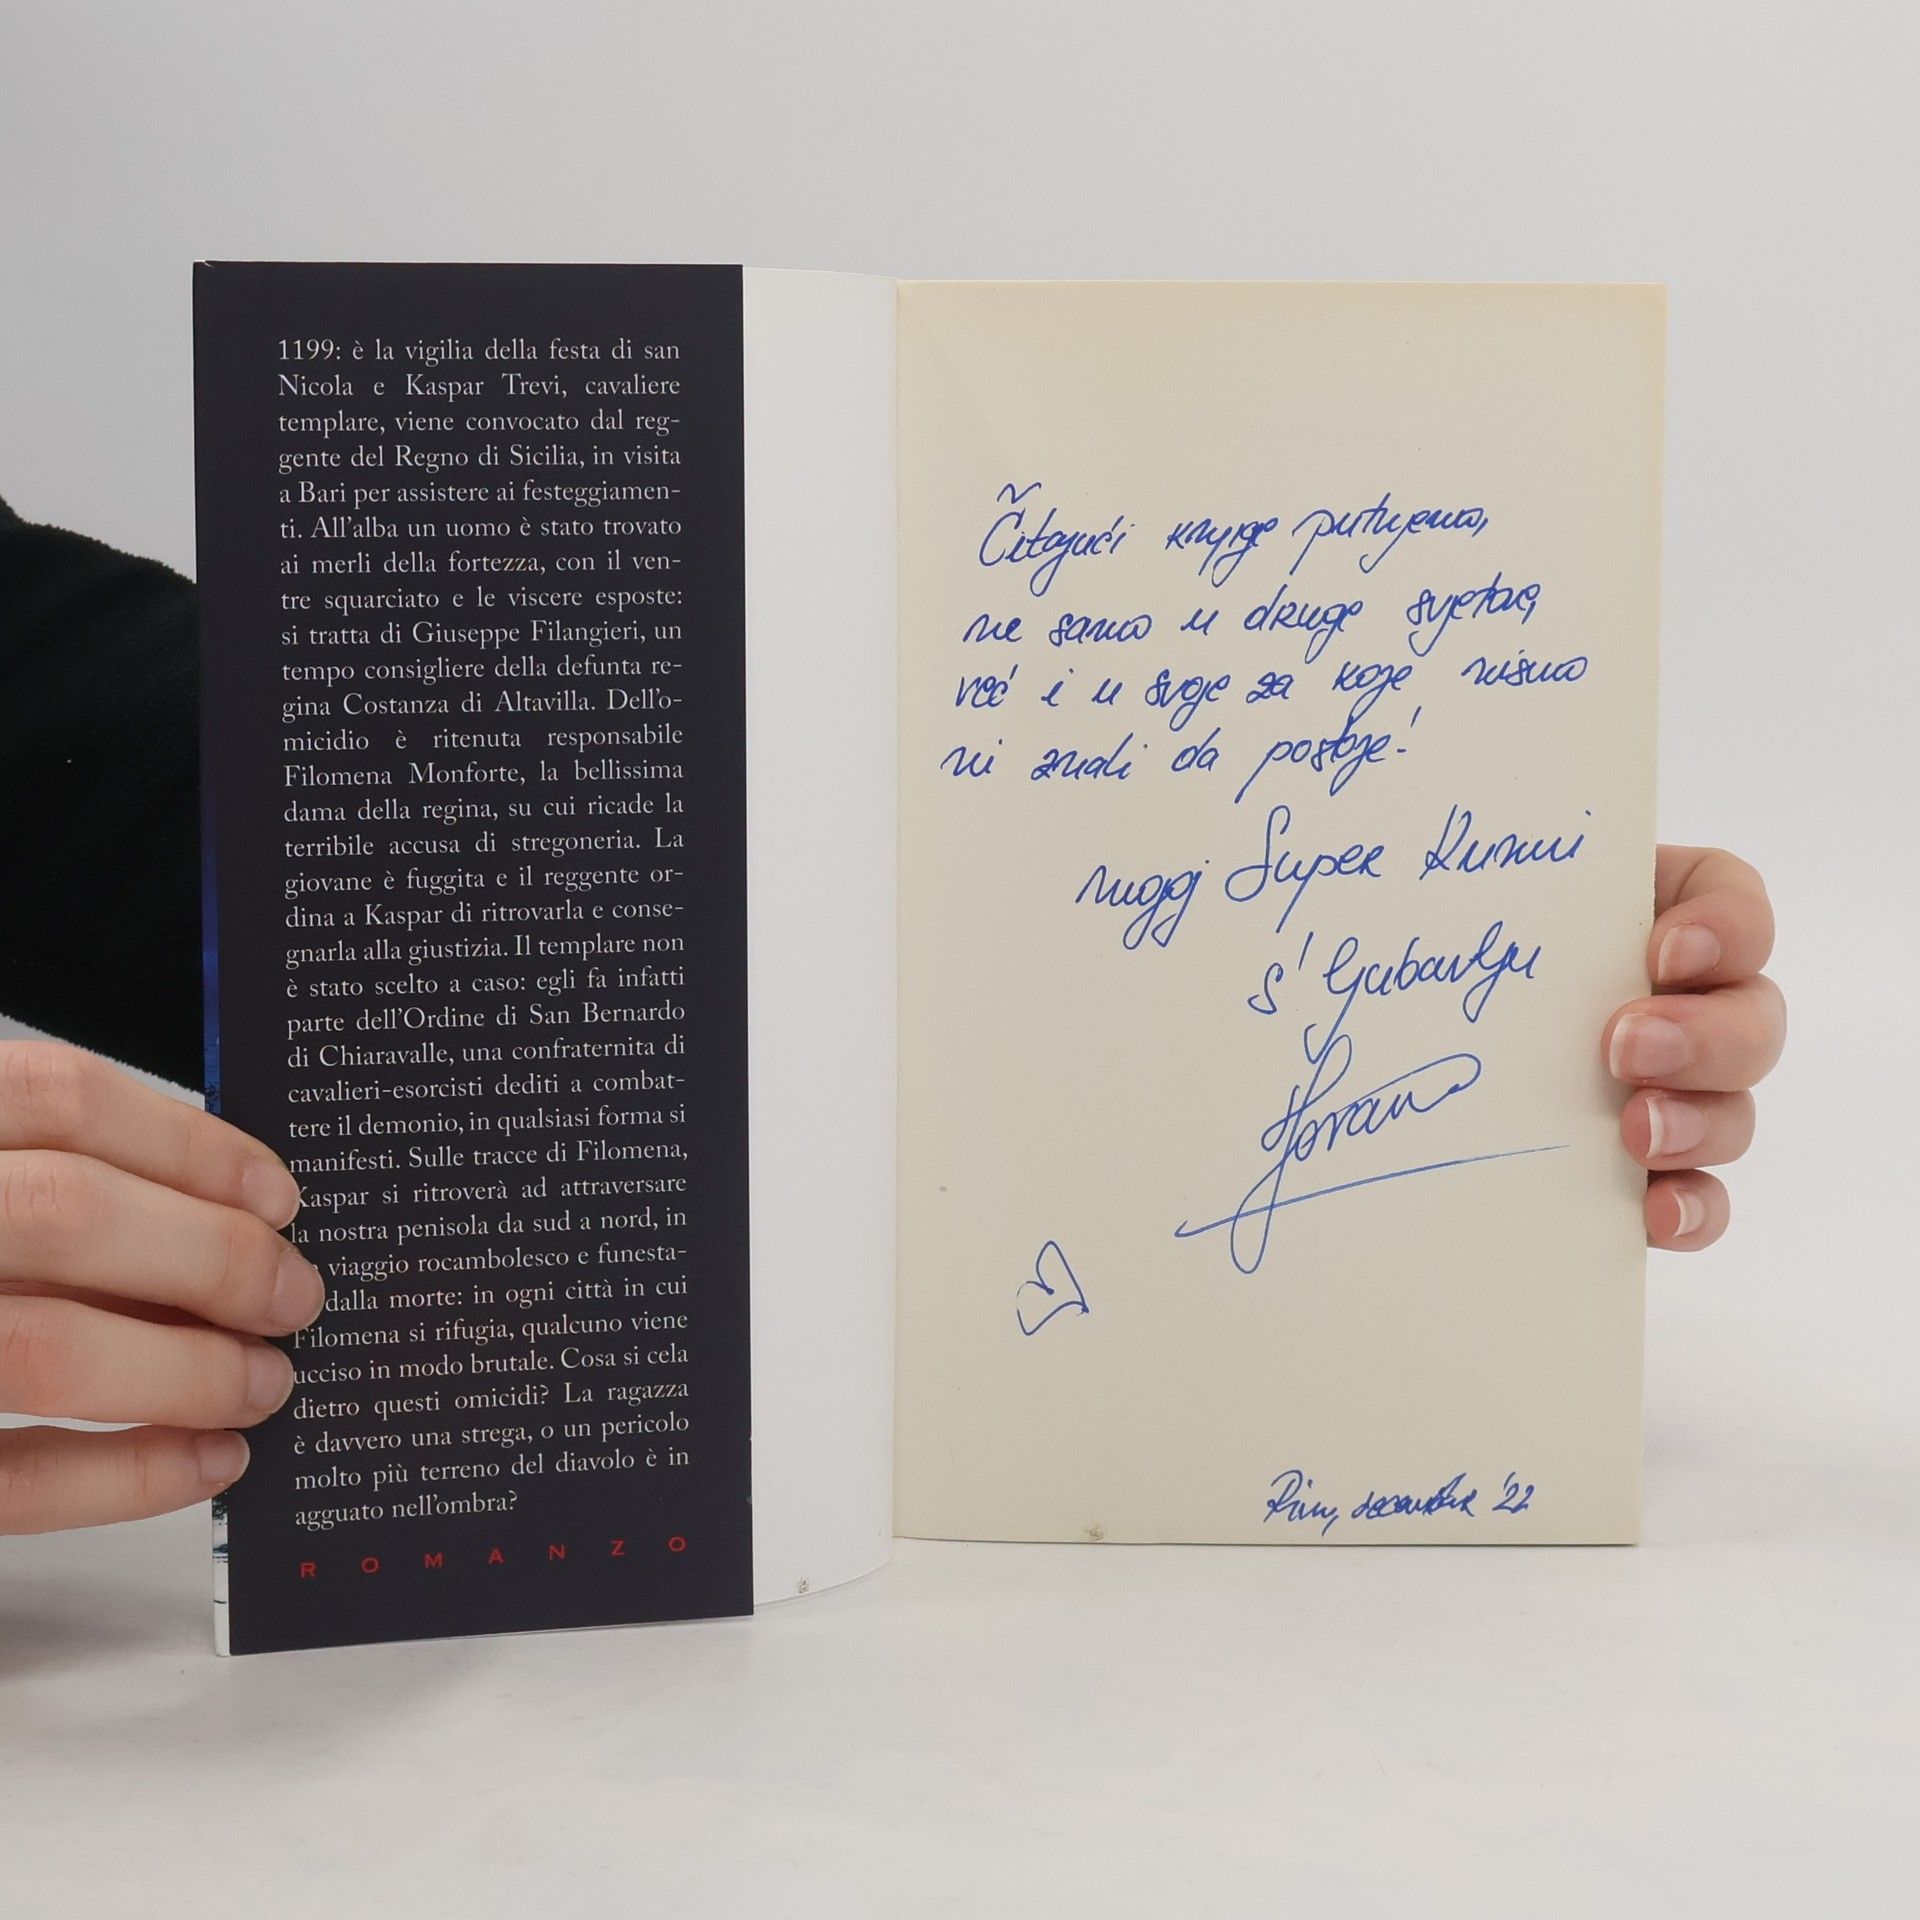 1199: è la vigilia della festa di san
Nicola e Kaspar Trevi, cavaliere
templare, viene convocato dal reg-
gente del Regno di Sicilia, in visita
a Bari per assistere ai festeggiamen-
ti. All'alba un uomo è stato trovato
ai merli della fortezza, con il ven-
tre squarciato e le viscere esposte:
si tratta di Giuseppe Filangieri, un
tempo consigliere della defunta re-
gina Costanza di Altavilla. Dell'o-
micidio è ritenuta responsabile
Filomena Monforte, la bellissima
dama della regina, su cui ricade la
terribile accusa di stregoneria. La
giovane è fuggita e il reggente or-
dina a Kaspar di ritrovarla e conse-
gnarla alla giustizia. Il templare non
è stato scelto a caso: egli fa infatti
parte dell'Ordine di San Bernardo
di Chiaravalle, una confraternita di
cavalieri-esorcisti dediti a combat-
tere il demonio, in qualsiasi forma si
manifesti. Sulle tracce di Filomena,
Kaspar si ritroverà ad attraversare
la nostra penisola da sud a nord, in
viaggio rocambolesco e funesta-
dalla morte: in ogni città in cui
Filomena si rifugia, qualcuno viene
ucciso in modo brutale. Cosa si cela
dietro questi omicidi? La ragazza
è davvero una strega, o un pericolo
molto più terreno del diavolo è in
agguato nell'ombra?
ROMANZO
Čitajući knjige putujemo,
ne samo u druge svjetove,
već i u svoje za koje nismo
ni znali da postoje!
mojoj Super Kumi
s' ljubavlju
Rim, decembar '22